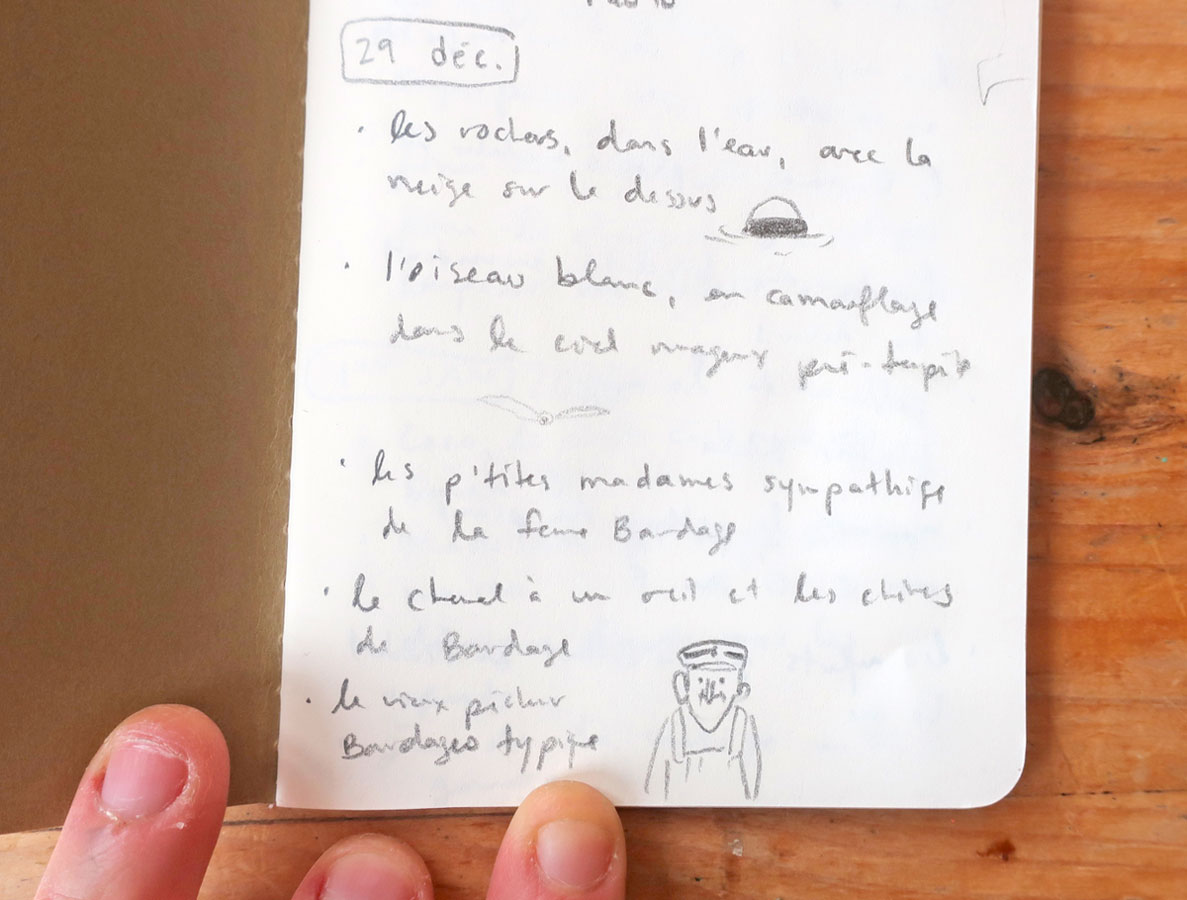 29 déc.
· les rochers, dans l'eau, avec la
neige sur le dessus
· l'oiseau blanc, en camouflage
dans le ciel nuageux pré-tempête
· les p'tites madames sympathique
de la ferme Bardage
· le cheval à un oeil et les chèvres
de Bardage
· le vieux pêcheur
typique